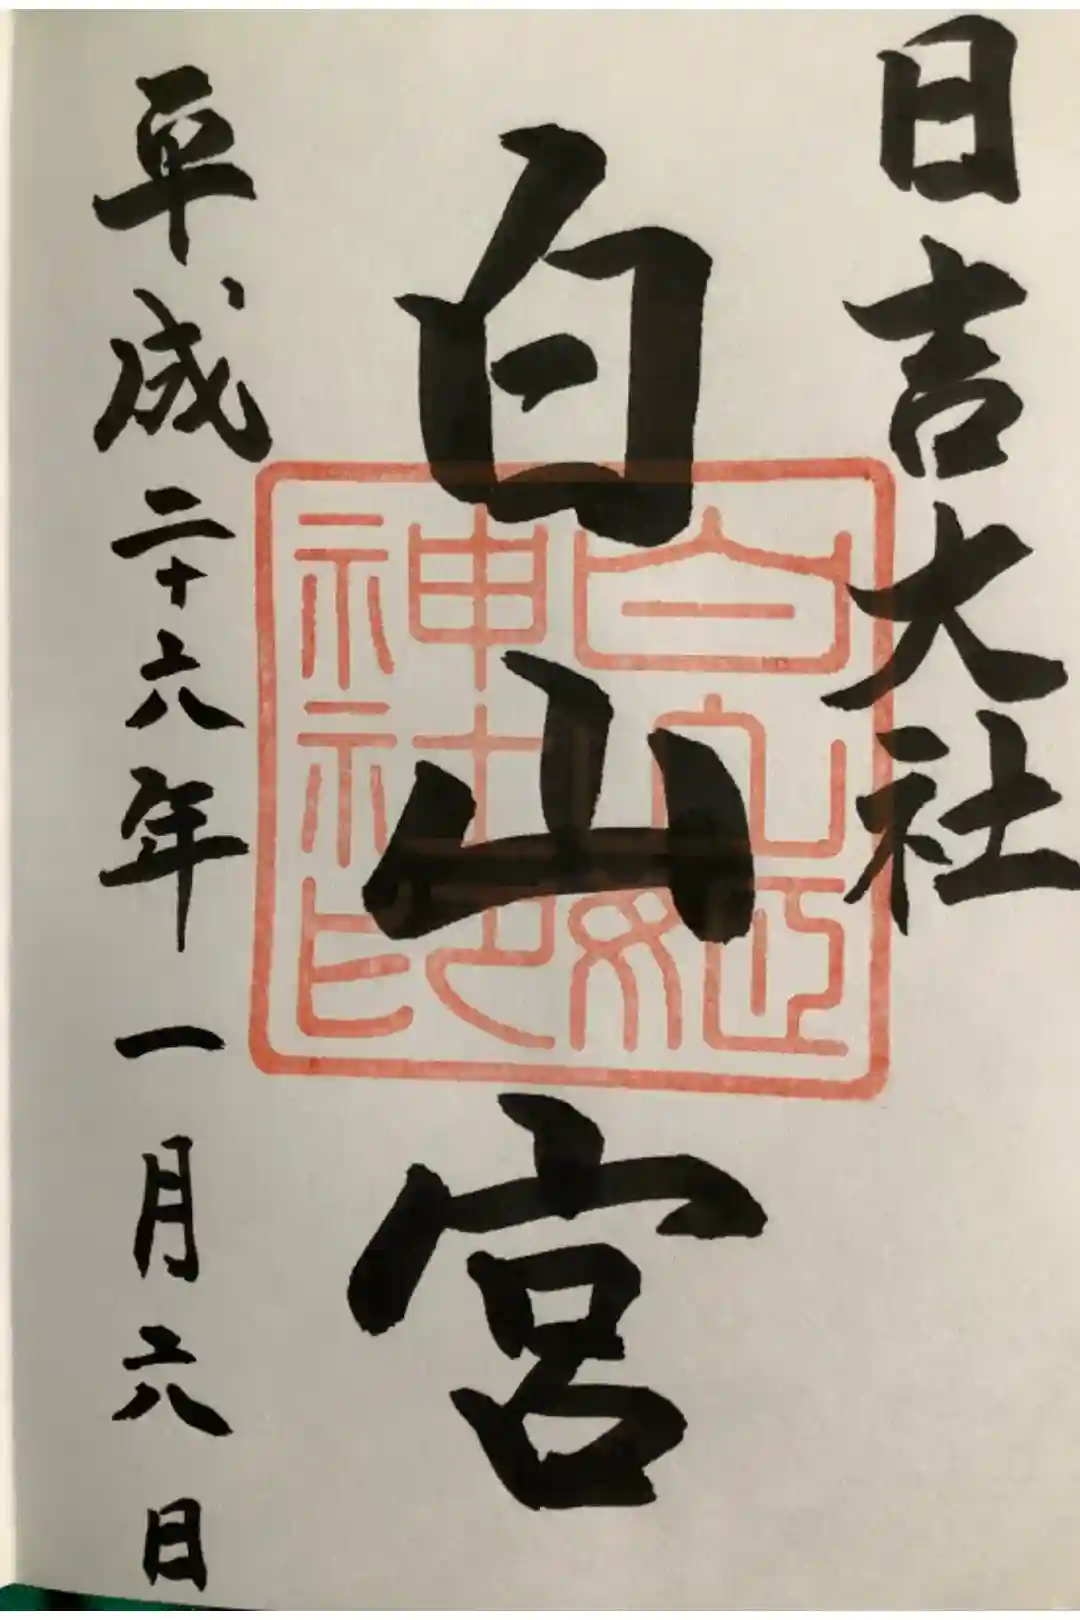 日吉大社
白山宮
白山姫神社之印
平成二十六年一月六日